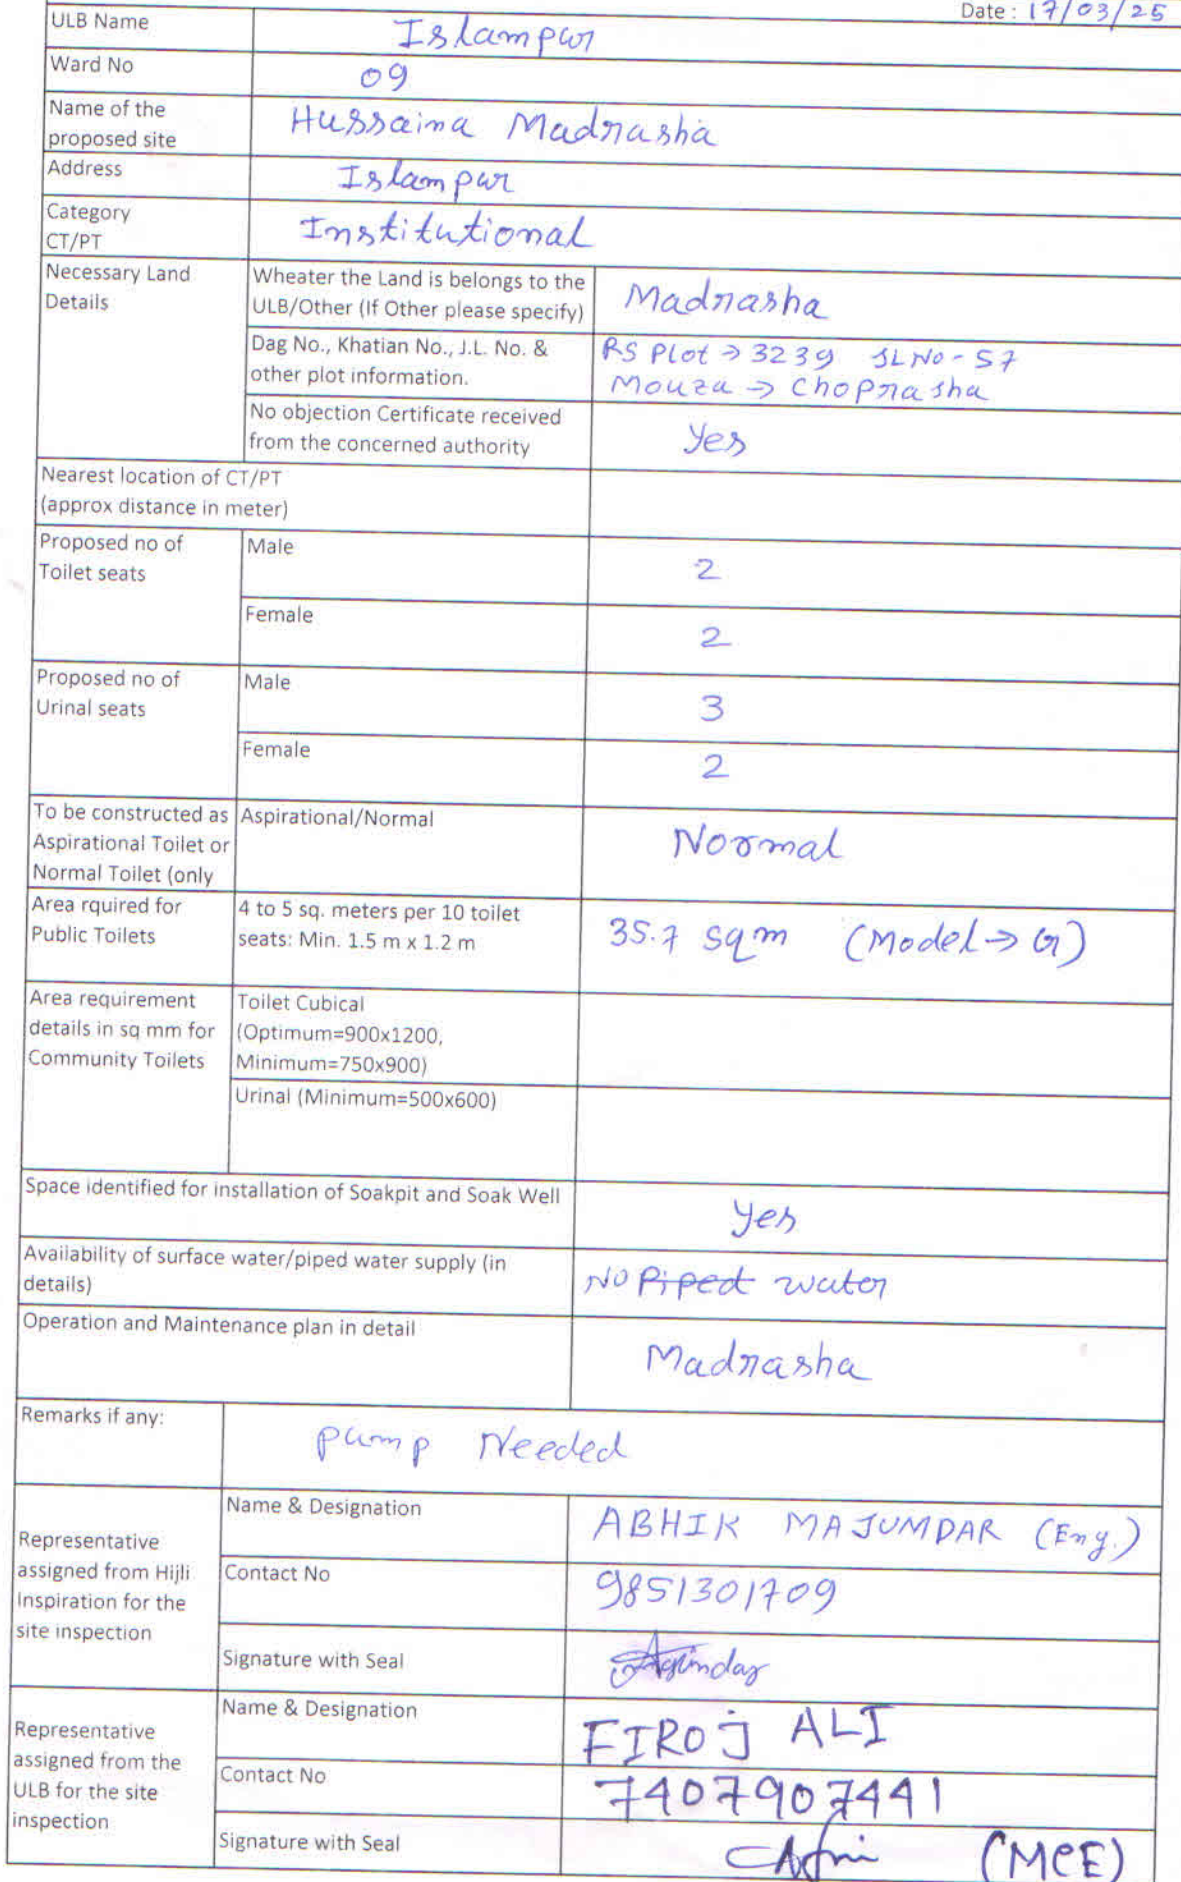 Date : 17/03/25
ULB Name Islampur
Ward No 09
Name of the
proposed site Hussaina Madrasha
Address Islampur
Category
CT/PT Institutional
Necessary Land
Details
Wheater the Land is belongs to the
ULB/Other (If Other please specify) Madrasha
Dag No., Khatian No., J.L. No. &
other plot information.
RS Plot → 3239 JL NO - 57
Mouza → Choprasha
No objection Certificate received
from the concerned authority Yes
Nearest location of CT/PT
(approx distance in meter)
Proposed no of
Toilet seats
Male 2
Female 2
Proposed no of
Urinal seats
Male 3
Female 2
To be constructed as
Aspirational Toilet or
Normal Toilet (only
Aspirational/Normal Normal
Area rquired for
Public Toilets
4 to 5 sq. meters per 10 toilet
seats: Min. 1.5 m x 1.2 m
35.7 sqm (Model → G)
Area requirement
details in sq mm for
Community Toilets
Toilet Cubical
(Optimum=900x1200,
Minimum=750x900)
Urinal (Minimum=500x600)
Space identified for installation of Soakpit and Soak Well yes
Availability of surface water/piped water supply (in
details)
NO Piped water
Operation and Maintenance plan in detail Madrasha
Remarks if any: pump Needed
Representative
assigned from Hijli
Inspiration for the
site inspection
Name & Designation ABHIK MAJUMDAR (Eng.)
Contact No 9851301709
Signature with Seal
Representative
assigned from the
ULB for the site
inspection
Name & Designation FIROJ ALI
Contact No 7407907441
Signature with Seal (MCE)